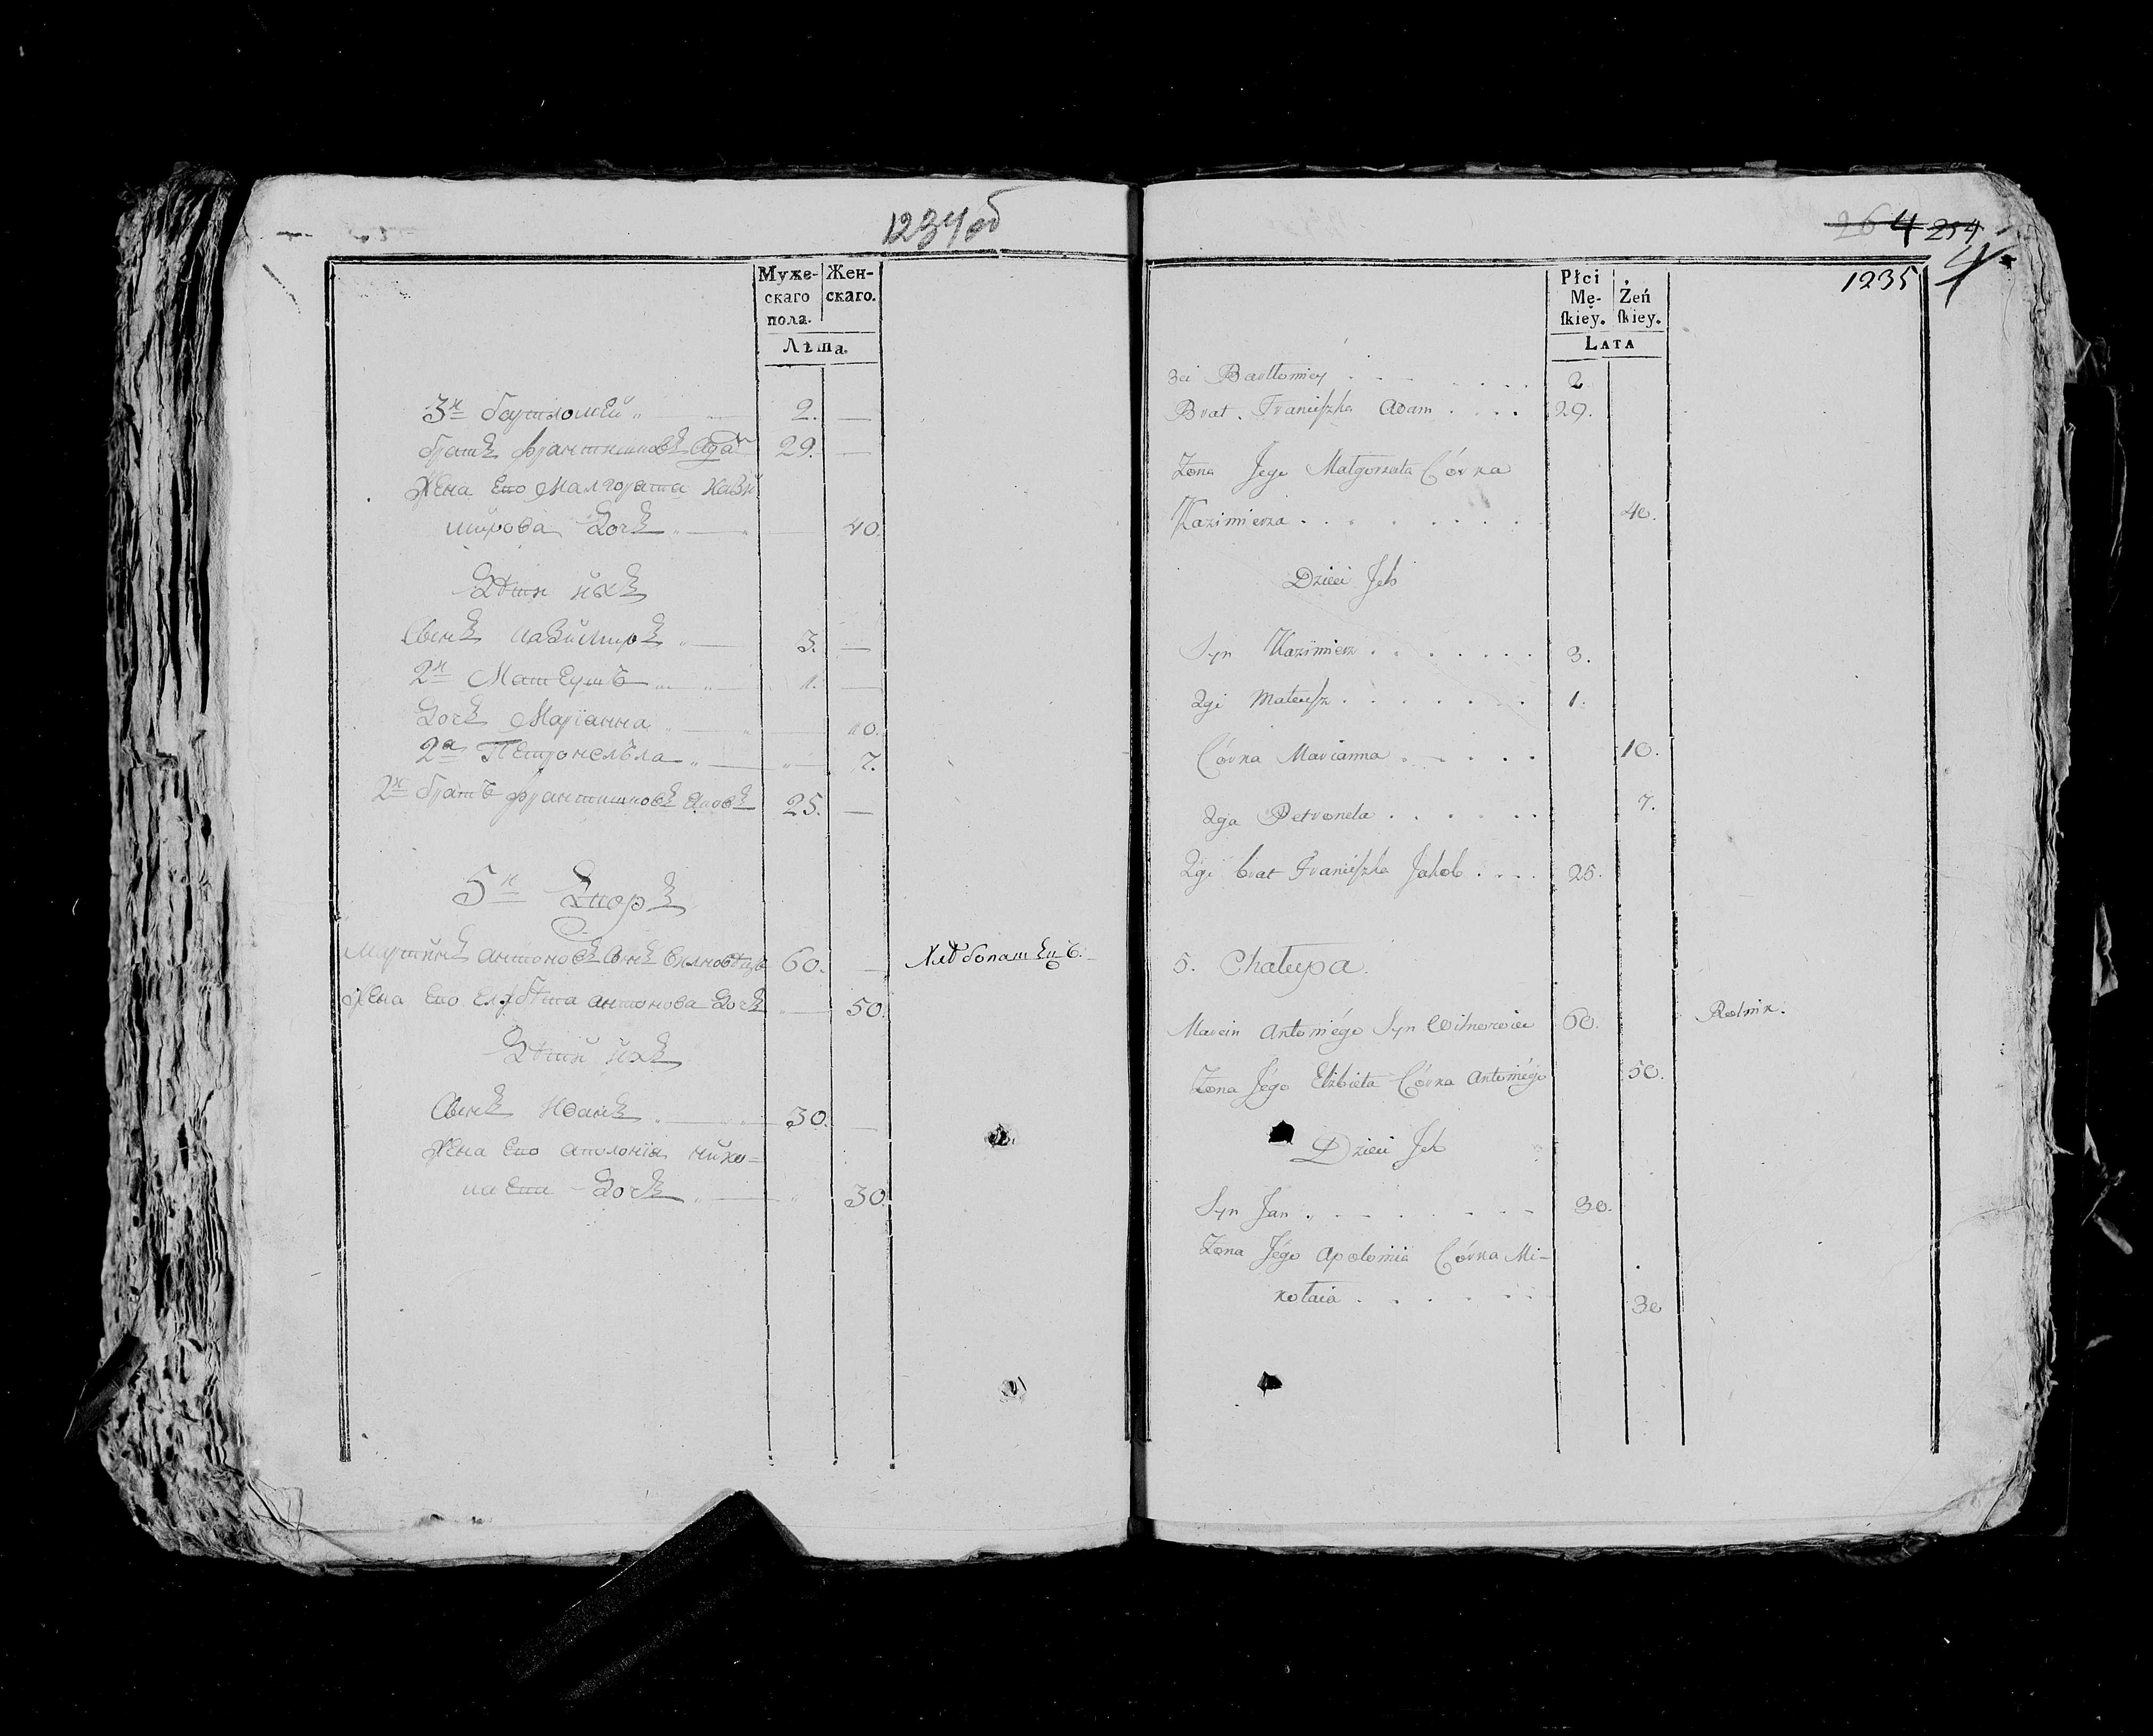 1234об
Муже- Жен-
скаго скаго.
пола.
Лѣта.
3й Бартломѣй 2. —
братъ Франтишковъ Адамъ 29. —
Жена Его Малгората Кази
мирова Дочь 40.
Дѣти ихъ
Сынъ Казимиръ 3. —
2й Матеушъ 1. —
Дочь Марїанна 10.
2а Петронелѣла 7.
2й братъ Франтишковъ Яковъ 25. —
5й Дворъ
Мартинъ Антоновъ Сынъ 60. — Хлѣбопашецъ.
Жена Его Елжбѣта Антонова Дочь 50.
Дѣтй ихъ
Сынъ Иванъ 30. —
Жена Его Аполонїя Нико=
лаева Дочь 30.
264 254
4
1235
Płci Żeń
Mę- skiey.
skiey.
LATA
3ci Bartłomiey 2
Brat Franciszka Adam 29.
Zona Jego Małgorzata Córka
Kazimierza 40.
Dzieci Jch
Syn Kazimierz 3.
2gi Mateusz 1.
Córka Marianna 10.
2ga Petronela 7.
2gi brat Franciszka Jakob 25.
5. Chałupa.
Marcin Antoniégo Syn 60. Rolnik.
Zona Jégo Elzbieta Córka Antoniégo 50.
Dzieci Jch
Syn Jan 30.
Zona Jégo Apolonia Córka Mi-
kołaia 30